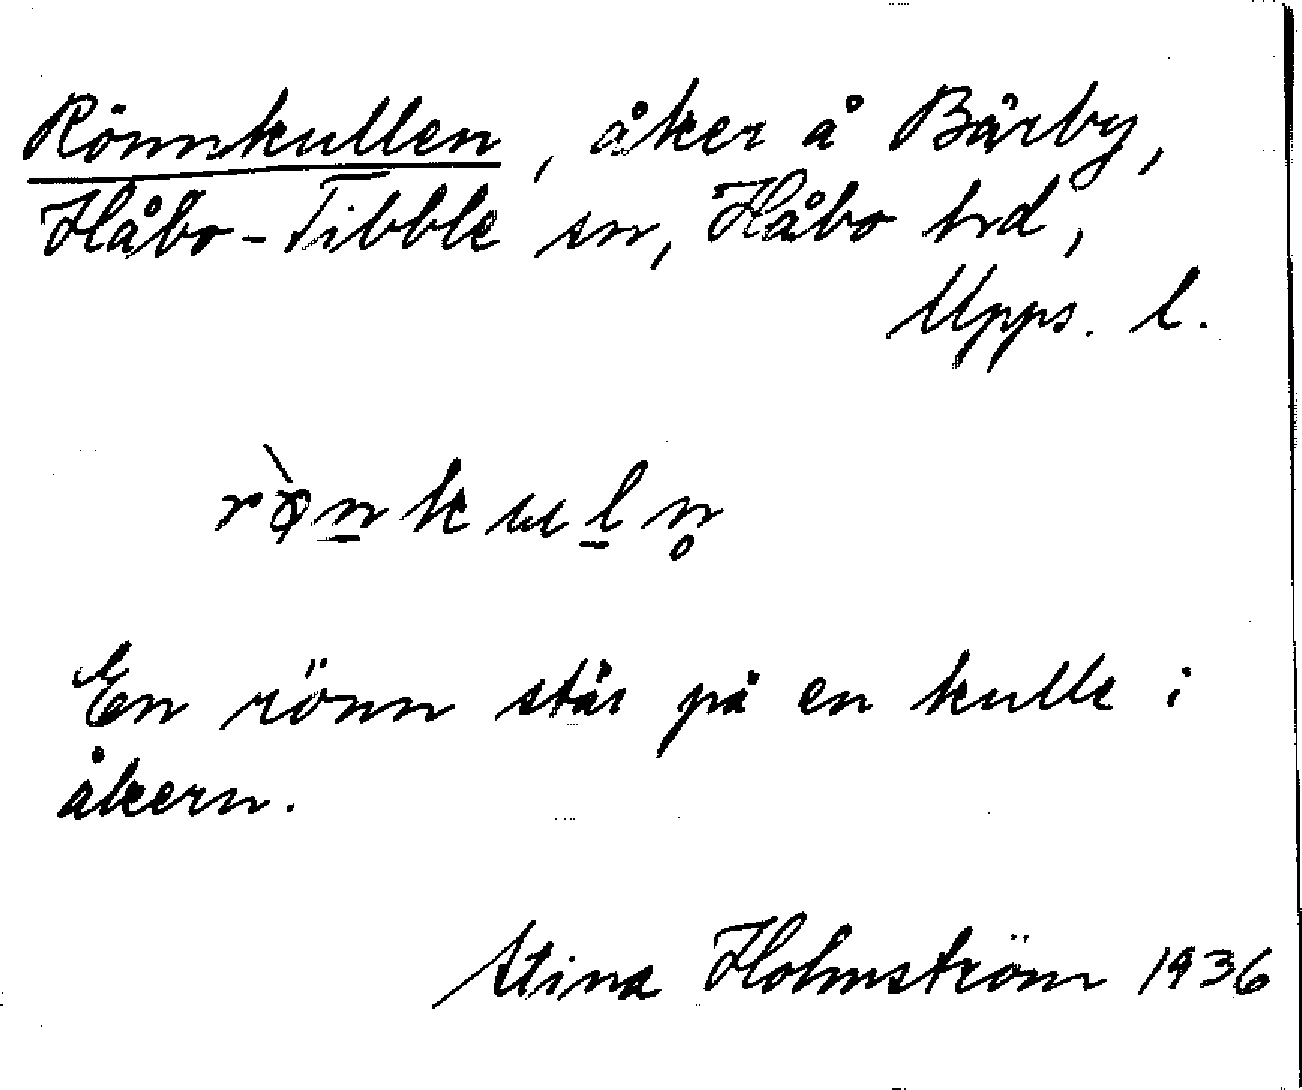 Rönnkullen, åker å Bärby,
Håbo-Tibble sn, Håbo hrd,
Upps. l.
rø̀n̲kul̲n̥
En rönn står på en kulle i
åkern.
Stina Holmström 1936